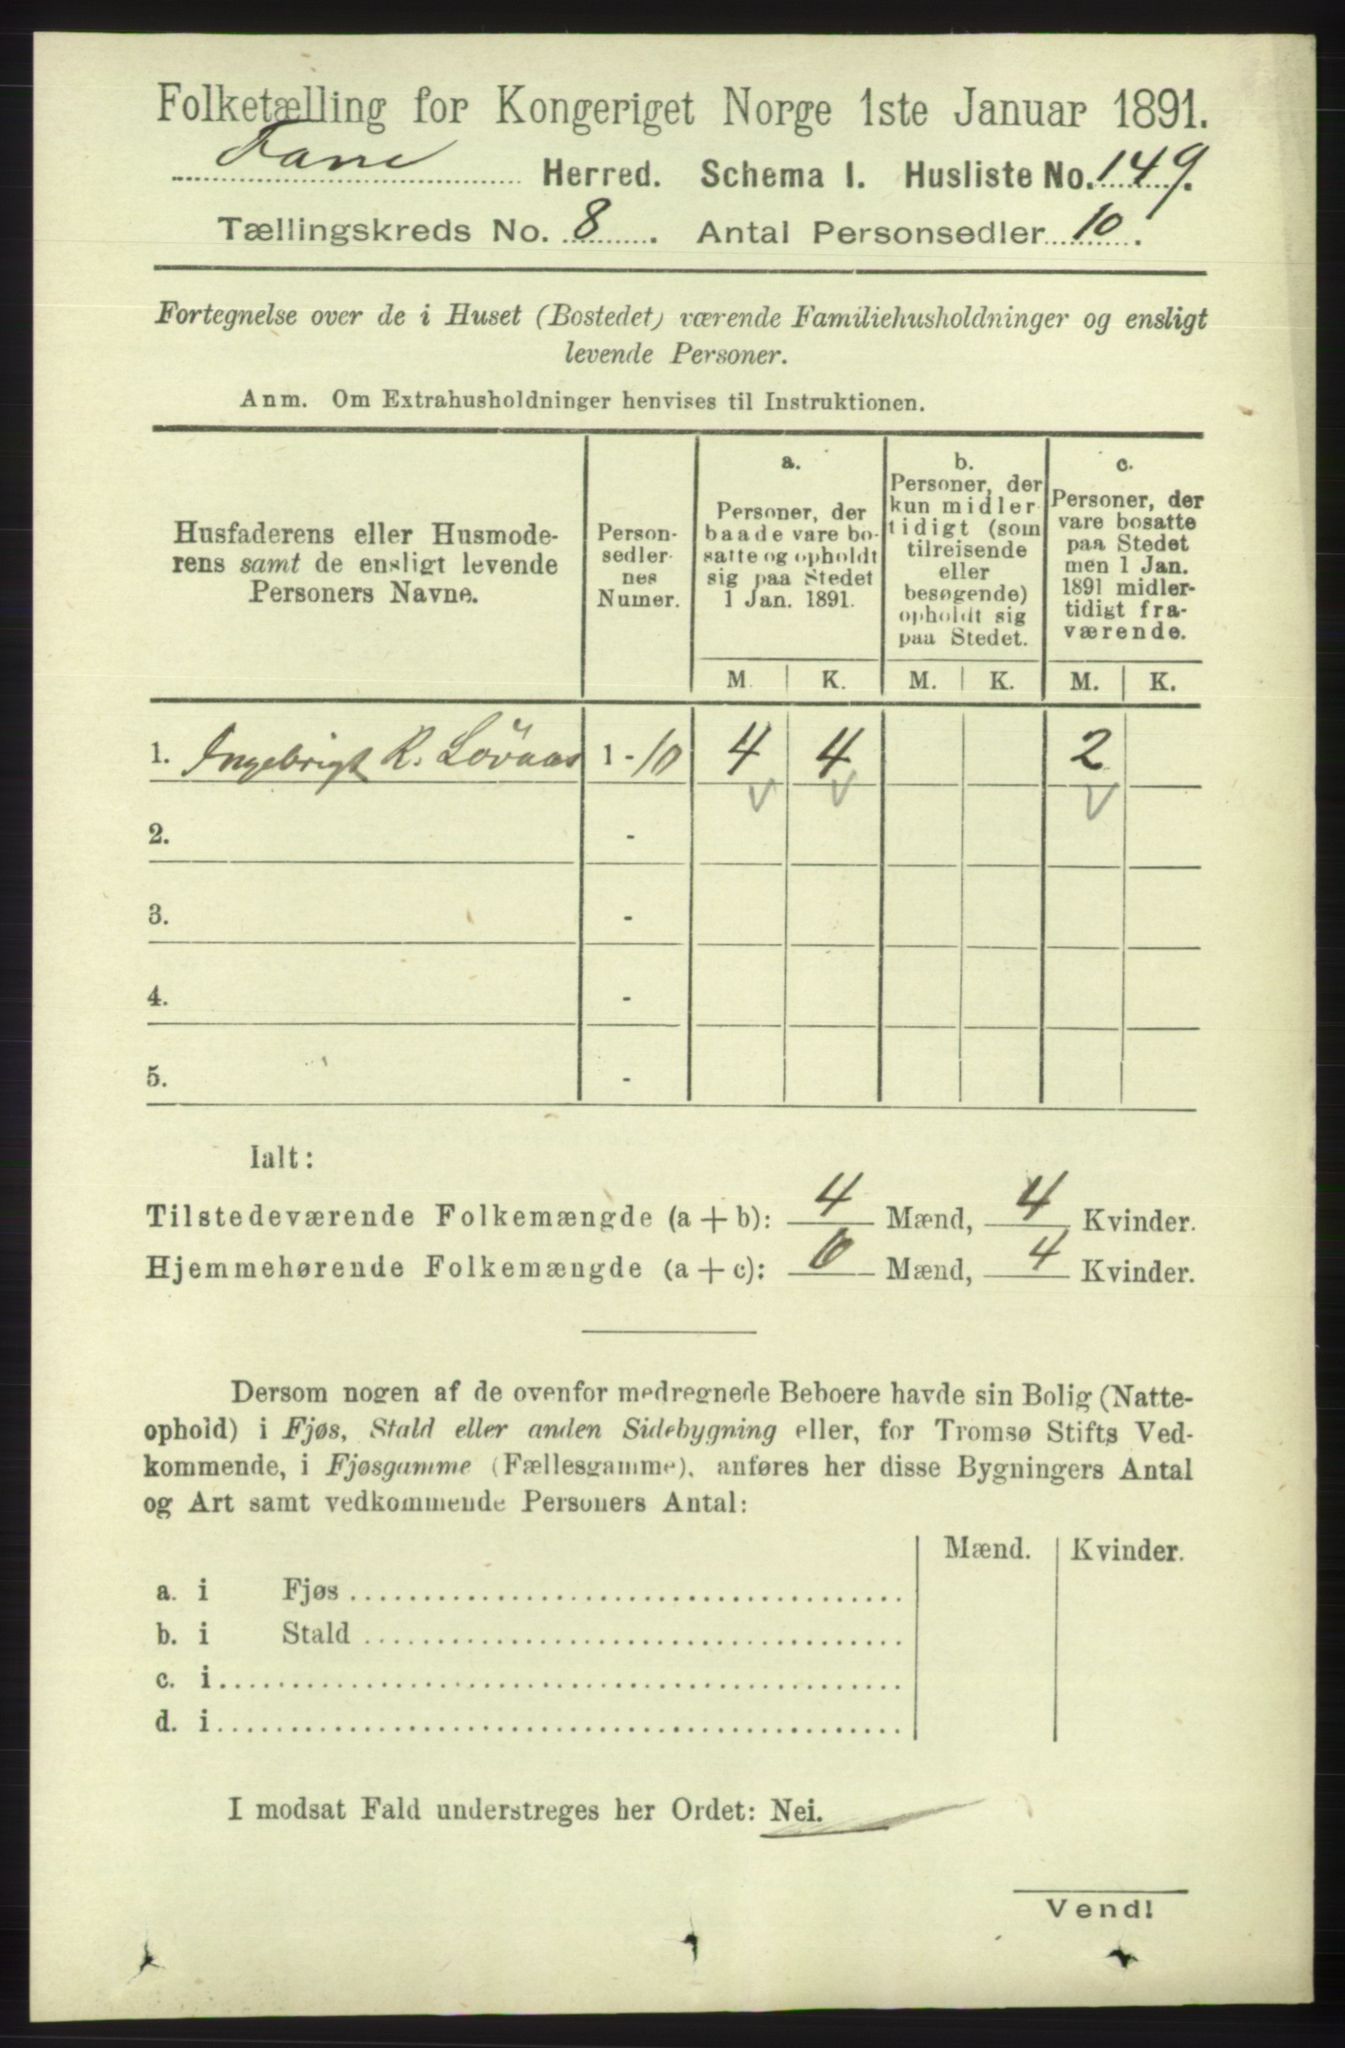 Folketælling for Kongeriget Norge 1ste Januar 1891.
Fane Herred. Schema I. Husliste No. 149.
Tællingskreds No. 8. Antal Personsedler 10.
Fortegnelse over de i Huset (Bostedet) værende Familiehusholdninger og ensligt
levende Personer.
Anm. Om Extrahusholdninger henvises til Instruktionen.
Husfaderens eller Husmode-
rens samt de ensligt levende
Personers Navne.
Person-
sedler-
nes
Numer.
a.
Personer, der
baade vare bo-
satte og opholdt
sig paa Stedet
1 Jan. 1891.
b.
Personer, der
kun midler-
tidigt (som
tilreisende
eller
besøgende)
opholdt sig
paa Stedet.
c.
Personer, der
vare bosatte
paa Stedet
men 1 Jan.
1891 midler-
tidigt fra-
værende.
M. K. M. K. M. K.
1. Ingebrigt R. Løvaas 1 - 10 4 4 2
2. -
3. -
4. -
5. -
Ialt:
Tilstedeværende Folkemængde (a + b): 4 Mænd, 4 Kvinder.
Hjemmehørende Folkemængde (a + c): 6 Mænd, 4 Kvinder.
Dersom nogen af de ovenfor medregnede Beboere havde sin Bolig (Natte-
ophold) i Fjøs, Stald eller anden Sidebygning eller, for Tromsø Stifts Ved-
kommende, i Fjøsgamme (Fællesgamme), anføres her disse Bygningers Antal
og Art samt vedkommende Personers Antal:
Mænd. Kvinder.
a. i Fjøs
b. i Stald
c. i
d. i
I modsat Fald understreges her Ordet: Nei.
Vend!